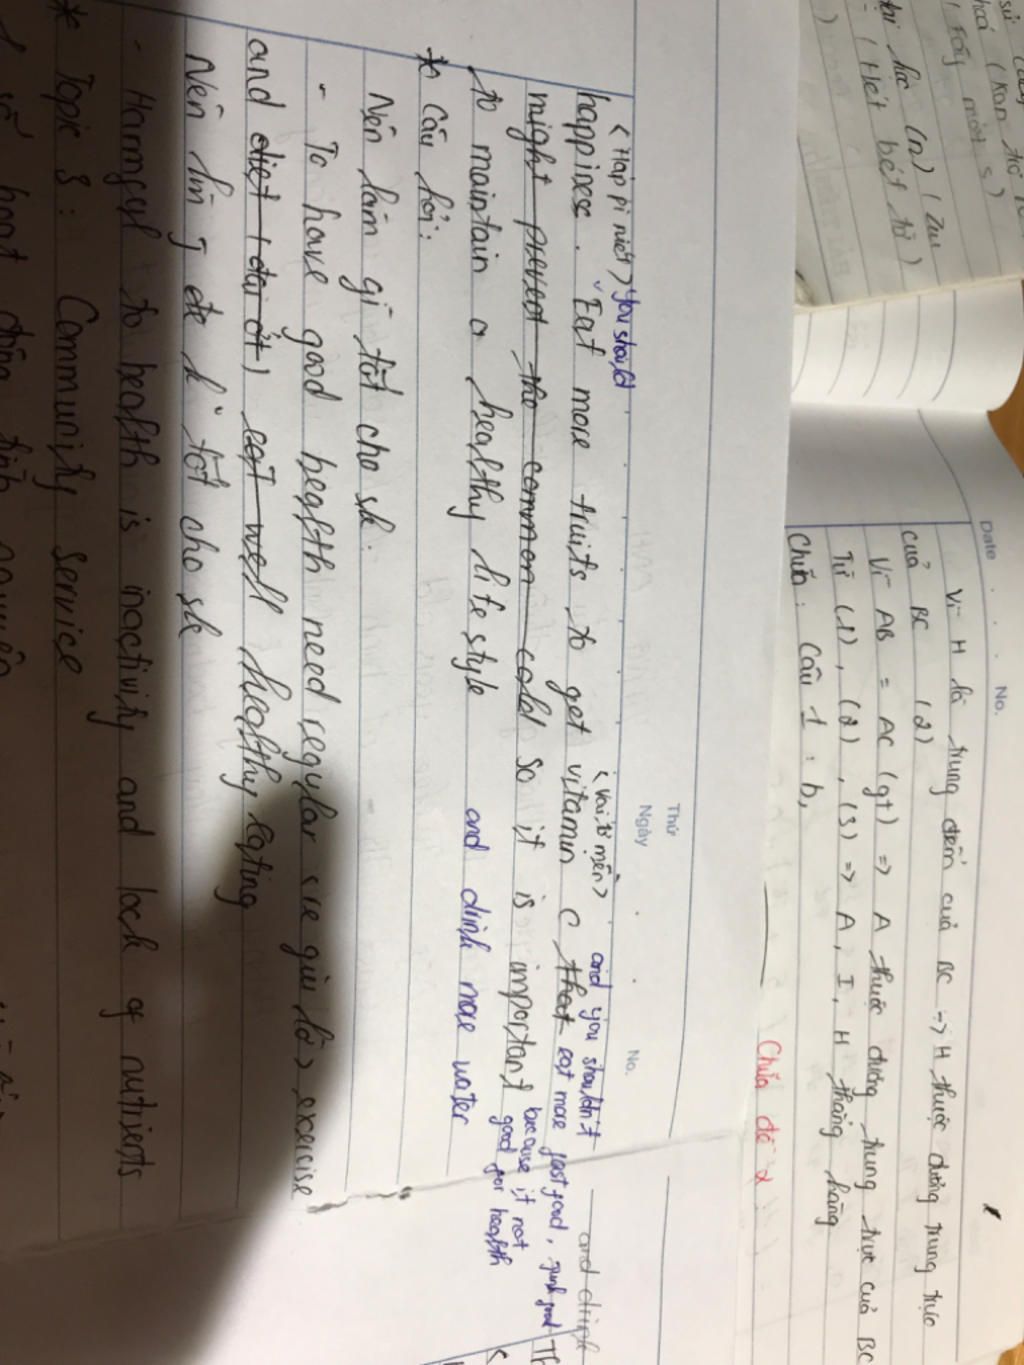 Thứ
Ngày
No.
<Hap pi niét> you should
happiness. Eat more fruits to get vitamin C that eat more fast food, junk food
<Vai tơ mên> and you shouldn't
and drink
might prevent the common cold so it is important because it not
good for health
to maintain a healthy life style and drink more water
* Câu hỏi:
Nên làm gì tốt cho sk:
- To have good health need regular <re giu lờ> exercise
and diet (đai ớt) eat well healthy eating
Nên lm j để k tốt cho sk
- Harmful to health is inactivity and lack of nutrients
* Topic 3: Community service
Date
No.
Vì H là trung điểm của BC => H thuộc đường trung trực
của BC (2)
Vì AB = AC (gt) => A thuộc đường trung trực của BC
Từ (1), (2), (3) => A, I, H thẳng hàng
Chữa: Câu 1: b,
Chữa đề 2